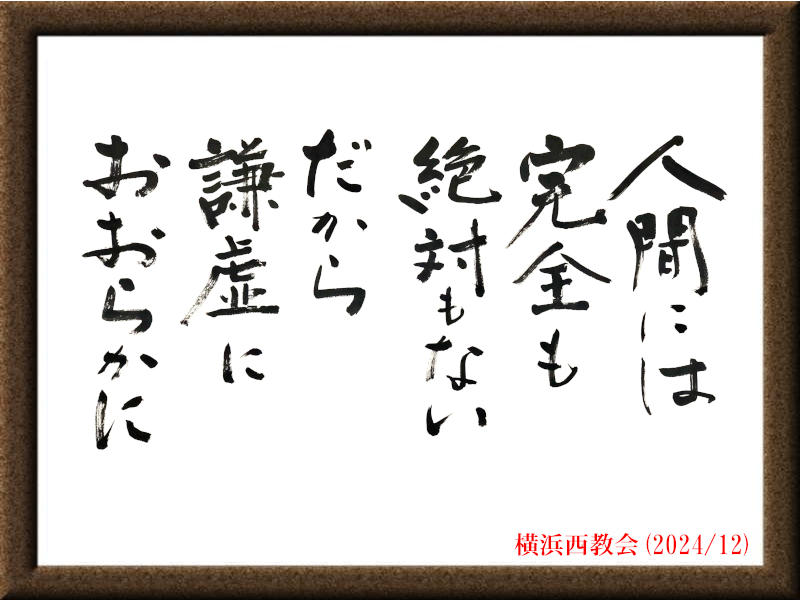 人間には
完全も
絶対もない
だから
謙虚に
おおらかに
横浜西教会(2024/12)